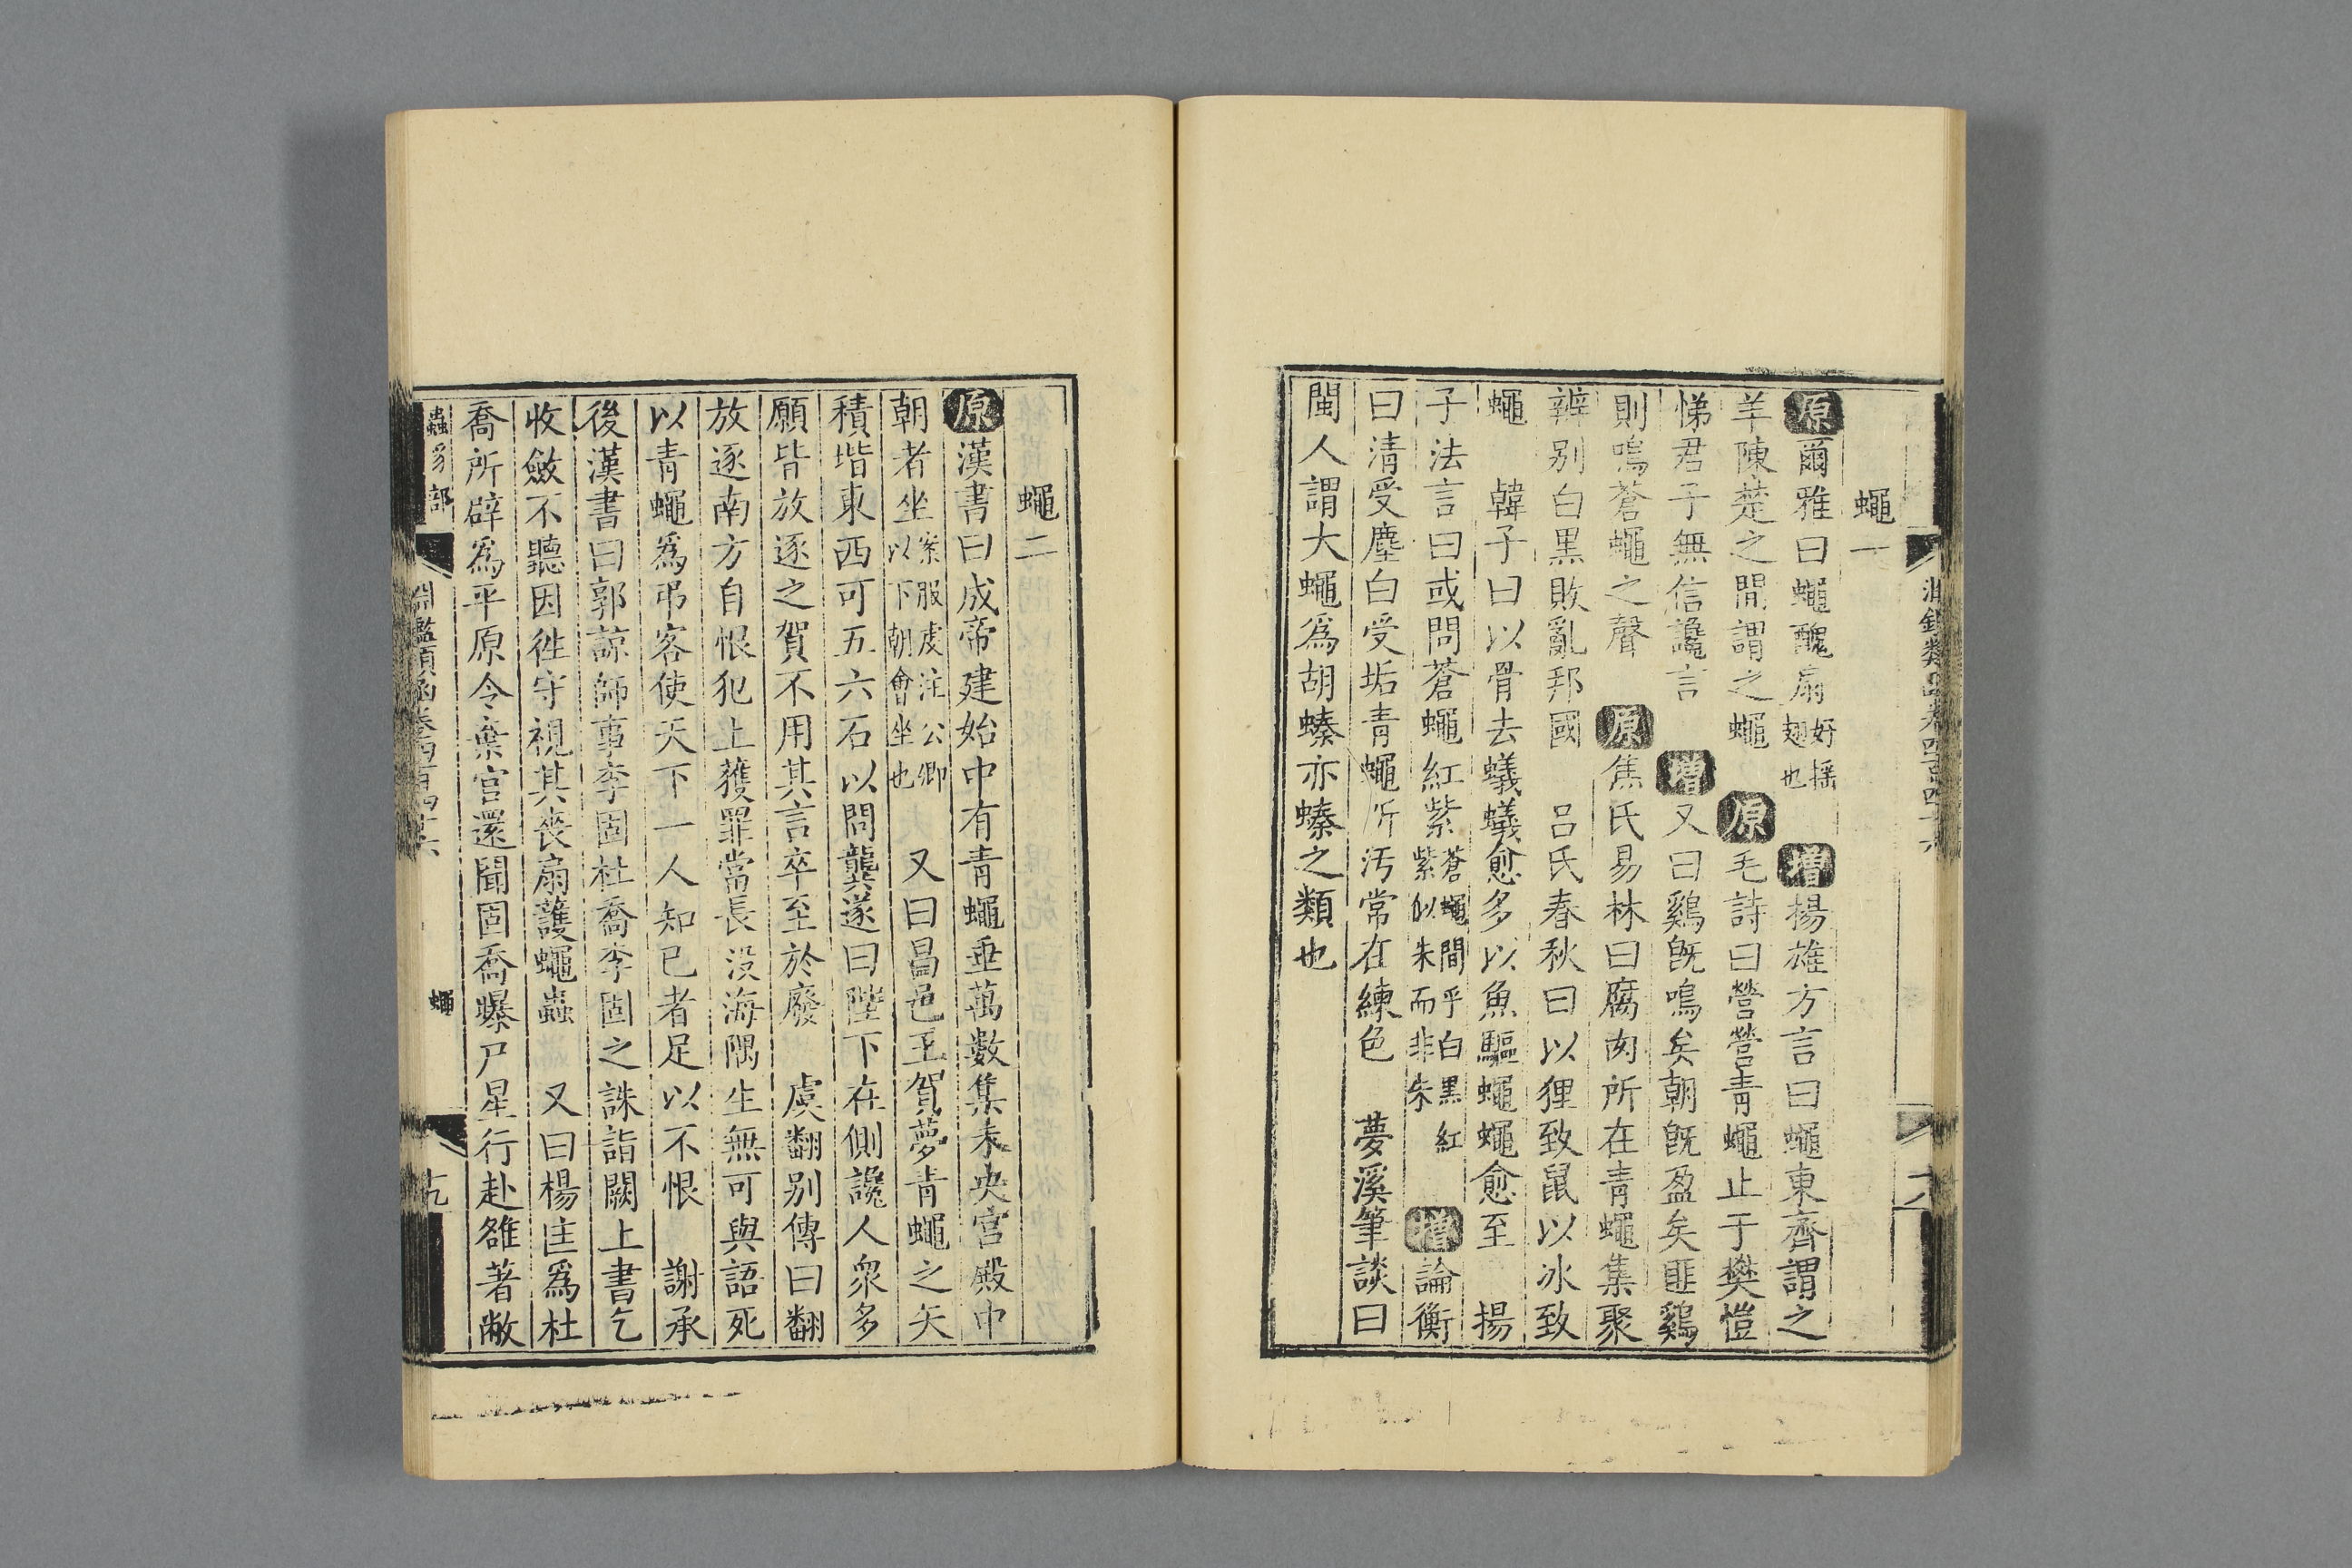 蠅一
原爾雅曰蠅醜扇好揺翅也增楊雄方言曰蠅東齊謂之
羊陳楚之間謂之蠅原毛詩曰營營青蠅止于樊愷
悌君子無信讒言增又曰鷄既鳴矣朝既盈矣匪鷄
則鳴蒼蠅之聲原焦氏易林曰腐肉所在青蠅集聚
辨别白黑敗亂邦國 呂氏春秋曰以狸致鼠以冰致
蠅 韓子曰以骨去蟻蟻愈多以魚驅蠅蠅愈至 揚
子法言曰或問蒼蠅紅紫蒼蠅間乎白黑紅紫似朱而非朱增論衡
曰清受塵白受垢青蠅所汚常在練色 夢溪筆談曰
閩人謂大蠅爲胡螓亦螓之類也
蠅二
原漢書曰成帝建始中有青蠅垂萬數集未央宫殿中
朝者坐案服虔注公卿以下朝會坐也 又曰昌邑王賀夢青蠅之矢
積堦東西可五六石以問龔遂曰陛下在側讒人衆多
願皆放逐之賀不用其言卒至於廢 虞翻别傳曰翻
放逐南方自恨犯上獲罪當長没海隅生無可與語死
以青蠅爲弔客使天下一人知已者足以不恨 謝承
後漢書曰郭諒師事李固杜喬李固之誅詣闕上書乞
收斂不聽因徃守視其喪扇護蠅蟲 又曰楊匡爲杜
喬所辟爲平原令棄官還聞固喬曝尸星行赴雒著敝
蟲豸部
淵鑑類函卷四百四十六
蠅